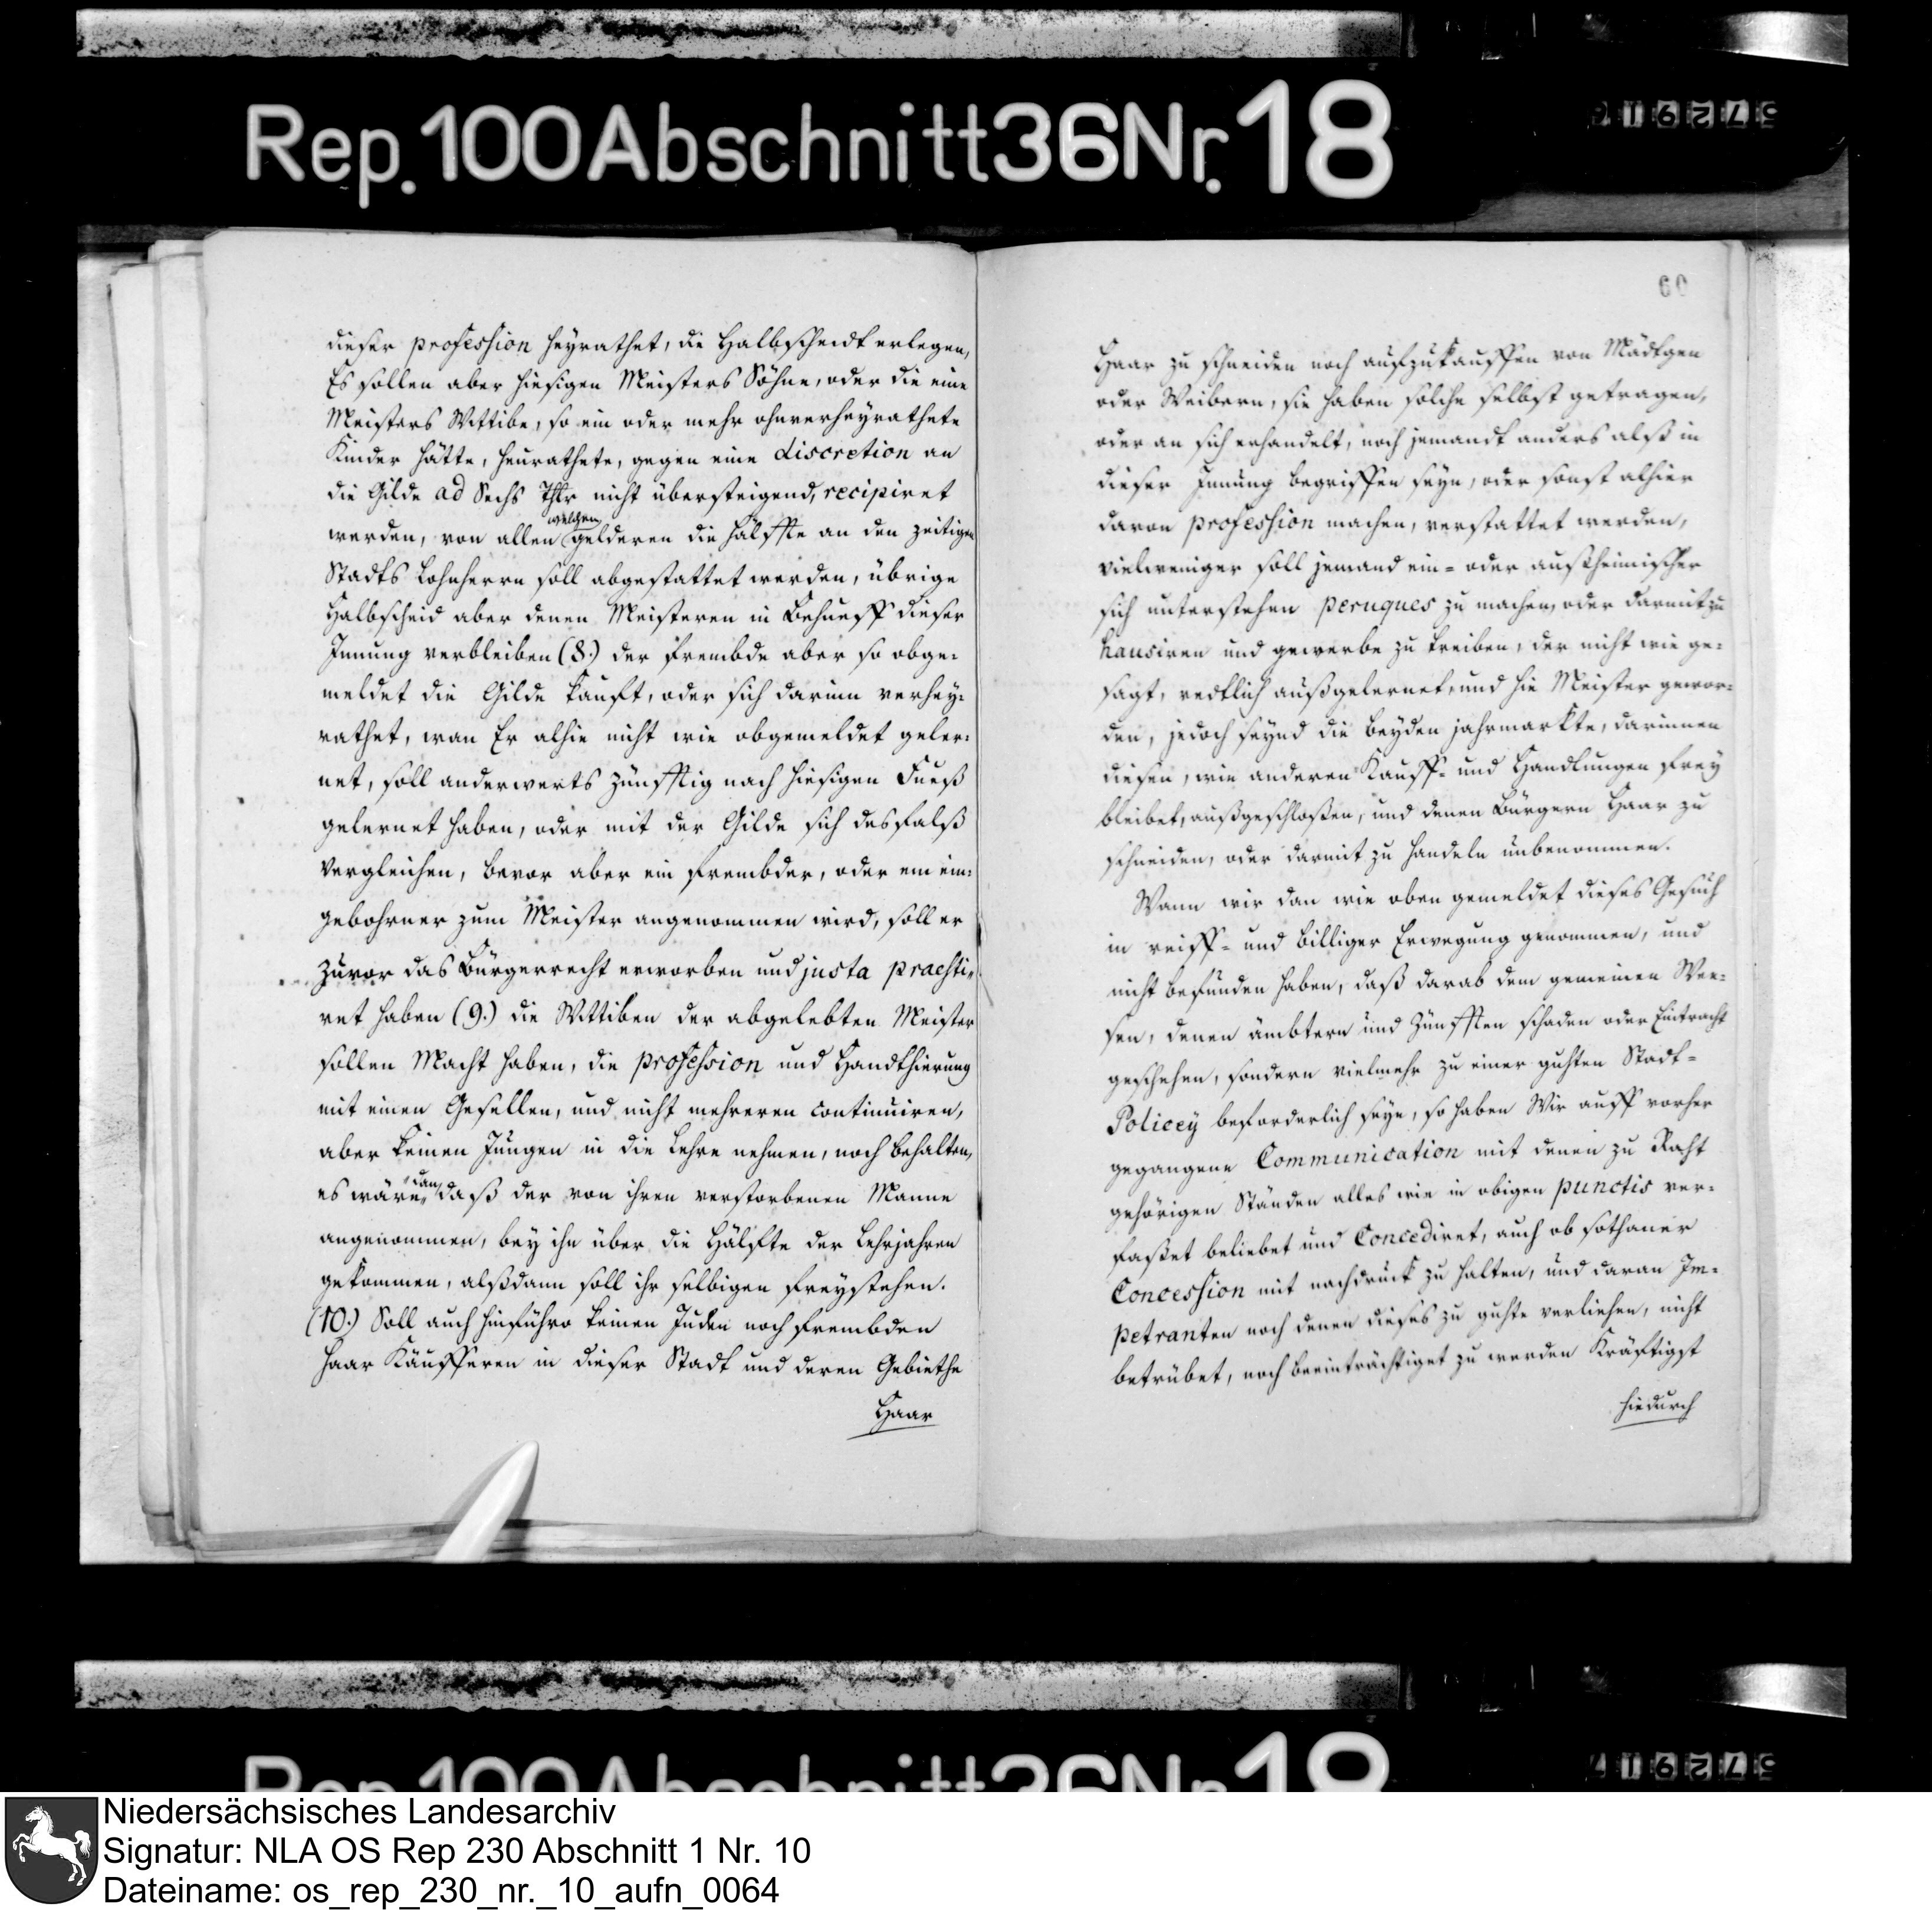 Rep. 100 Abschnitt 36 Nr. 18
dieser profession heyrathet, die Halbscheidt erlegen,
Es sollen aber hiesigen Meisters Söhne, oder die eine
Meisters Wittibe, so ein oder mehr ohnverheyrathete
Kinder hätte, heurathete, gegen eine discretion an
die Gilde ad Sechs Thlr nicht übersteigend, recipiret
werden, von allen welchen gelderen die hälffte an den zeitigen
Stadts Lohnherrn soll abgestattet werden, übrige
Halbscheid aber denen Meisteren in Behueff dieser
Innung verbleiben (8.) der frembde aber so obge-
meldet die Gilde kauft, oder sich darinn verhey-
rathet, wan Er alhie nicht wie obgemeldet geler-
net, soll anderwerts zünfftig nach hiesigen Fueß
gelernet haben, oder mit der Gilde sich desfalß
vergleichen, bevor aber ein frembder, oder ein ein-
gebohrner zum Meister angenommen wird, soll er
zuvor das Bürgerrecht erworben und justa praesti-
ret haben (9.) die Wittiben der abgelebten Meister
sollen Macht haben, die profession und Handthierung
mit einen Gesellen, und nicht mehreren continuiren,
aber keinen Jungen in die Lehre nehmen, noch behalten,
es wäre dan, daß der von ihren verstorbenen Manne
angenommen, bey ihn über die Hälfte der Lehrjahren
gekommen, alßdann soll ihr selbigen freystehen.
(10.) Soll auch hinführo keinen Juden noch frembden
Haar Käufferen in dieser Stadt und deren Gebiethe
Haar
60
Haar zu schneiden noch aufzukauffen von Mädtgen
oder Weibern, sie haben solche selbst getragen,
oder an sich erhandelt, noch jemandt anders alß in
dieser Innung begriffen seyn, oder sonst alhier
davon profession machen, verstattet werden,
vielweniger soll jemand ein- oder außheimischer
sich unterstehen peruques zu machen, oder darmit zu
hausiren und gewerbe zu treiben, der nicht wie ge-
sagt, redtlich außgelernet, und hie Meister gewor-
den, jedoch seynd die beyden jahrmarkte, darinnen
diesen, wie anderen Kauff- und Handlungen frey
bleibet, außgeschloßen, und denen Bürgern Haar zu
schneiden, oder darmit zu handeln unbenommen.
Wann wir dan wie oben gemeldet dieses Gesuch
in reiff- und billiger Erwegung genommen, und
nicht befunden haben, daß darab dem gemeinen Wee-
sen, denen ämbtern und Zünfften schaden oder Eintracht
geschehen, sondern vielmehr zu einer guhten Stadt-
Policey beforderlich seye, so haben Wir auff vorher
gegangene Communication mit denen zu Raht
gehörigen Ständen alles wie in obigen punctis ver-
faßet beliebet und Concediret, auch ob sothaner
Concession mit nachdruck zu halten, und daran Im-
petranten noch denen dieses zu guhte verliehen, nicht
betrübet, noch beeinträchtiget zu werden Kräftigst
hiedurch
Niedersächsisches Landesarchiv
Signatur: NLA OS Rep 230 Abschnitt 1 Nr. 10
Dateiname: os_rep_230_nr._10_aufn_0064